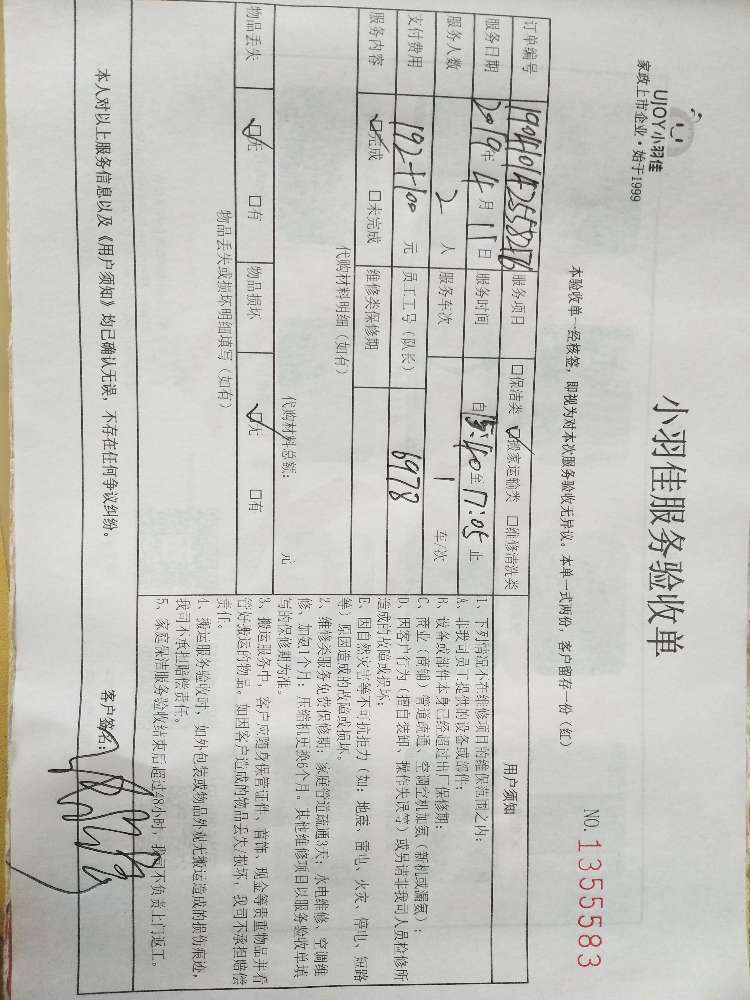 UJOY小羽佳
家政上市企业·始于1999
小羽佳服务验收单
本验收单一经核签，即视为对本次服务验收无异议。本单一式两份，客户留存一份（红）
NO. 1355583
订单编号 服务项目 □保洁类 ☑搬家运输类 □维修清洗类
服务日期 2019年4月11日 服务时间 自15:40至17:05止
服务人数 2人 服务车次 1 车/次
支付费用 元 员工工号（队长） 6978
服务内容 ☑完成 □未完成 维修类保修期
代购材料明细（如有）
代购材料总额： 元
物品丢失 ☑无 □有 物品损坏 ☑无 □有
物品丢失或损坏明细填写（如有）
用户须知
1、下列情况不在维修项目的维保范围之内：
A、非我司员工提供的设备或部件；
B、设备或部件本身已经超过出厂保修期；
C、商业（商铺）管道疏通、空调空机加氨（新机或漏氨）；
D、因客户行为（擅自装卸、操作失误等）或另请非我司人员检修所
造成的故障或损坏；
E、因自然灾害等不可抗拒力（如：地震、雷电、火灾、停电、短路
等）原因造成的故障或损坏。
2、维修类服务免费保修期：家庭管道疏通3天；水电维修、空调维
修、加氨1个月；压缩机更换6个月。其他维修项目以服务验收单填
写的保修期为准。
3、搬运服务中，客户应随身保管证件、首饰、现金等贵重物品并看
管好搬运的物品。如因客户造成的物品丢失/损坏，我司不承担赔偿
责任。
4、搬运服务验收时，如外包装或物品外观无搬运造成的损伤痕迹，
我司不承担赔偿责任。
5、家庭保洁服务验收结束后超过48小时，我司不负责上门返工。
本人对以上服务信息以及《用户须知》均已确认无误，不存在任何争议纠纷。
客户签名：